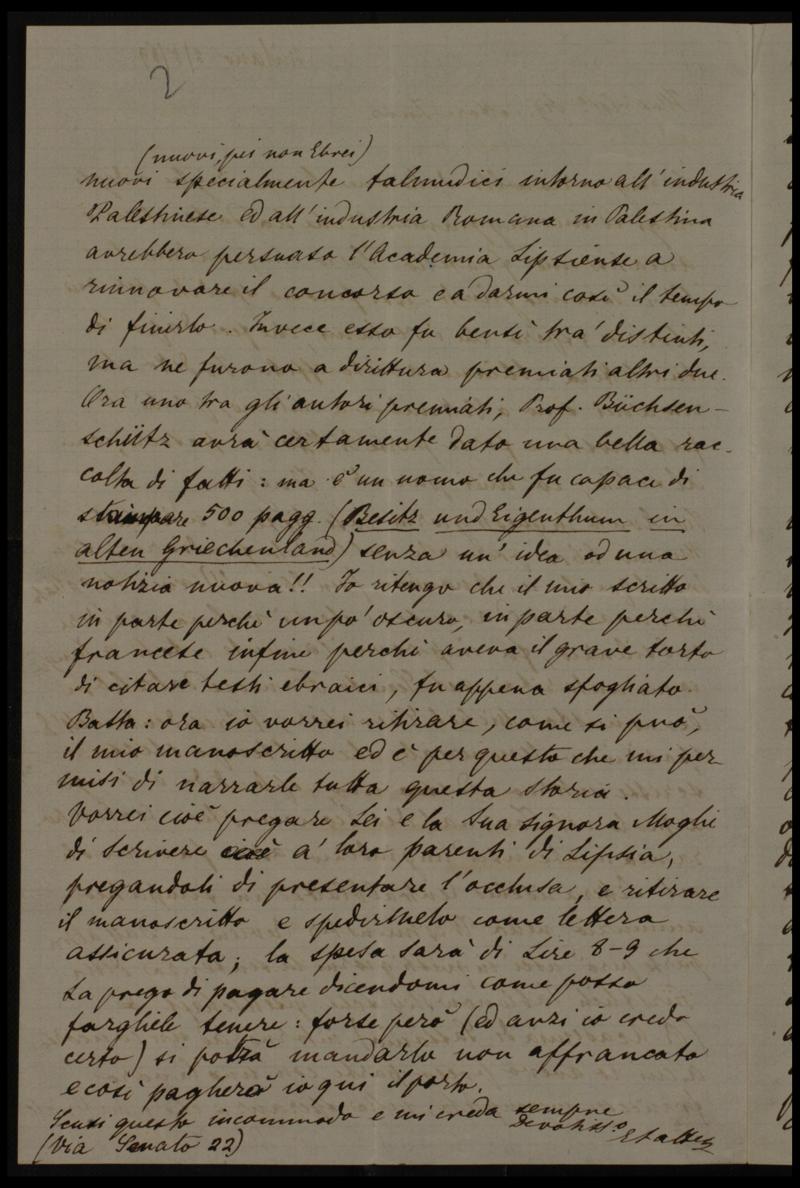 2
(nuovi, pei non Ebrei)
nuovi specialmente talmudici intorno all'industria
Palestinese ed all'industria Romana in Palestina
avrebbero persuaso l'Academia Lipsiense a
rinnovare il concorso e a darmi così il tempo
di finirlo. Invece esso fu bensì tra' distinti,
ma ne furono a dirittura premiati altri due.
Ora uno tra gli autori premiati, Prof. Büchsen-
schütz avrà certamente dato una bella rac-
colta di fatti: ma è un uomo che fu capace di
stampare 500 pagg. (Besitz und Eigenthum in
alten Griechenland) senza un'idea od una
notizia nuova!! Io ritengo che il mio scritto
in parte perchè un po' oscuro, in parte perchè
francese infine perchè aveva il grave torto
di citare testi ebraici, fu appena sfogliato.
Basta: ora io vorrei ritirare, come si può,
il mio manoscritto ed è per questo che mi per-
misi di narrarle tutta questa storia.
Vorrei cioè pregare Lei e la Sua signora Moglie
di scrivere cioè a' loro parenti di Lipsia,
pregandoli di presentare l'occlusa, e ritirare
il manoscritto e spedirmelo come lettera
assicurata; la spesa sarà di Lire 8-9 che
La prego di pagare dicendomi come posso
farghiele tenere: forse però (ed anzi io credo
certo) si potrà mandarlo non affrancato
e così pagherò io qui il porto.
Scusi questo incommodo e mi creda sempre
devotiss.o
(Via Senato 22)